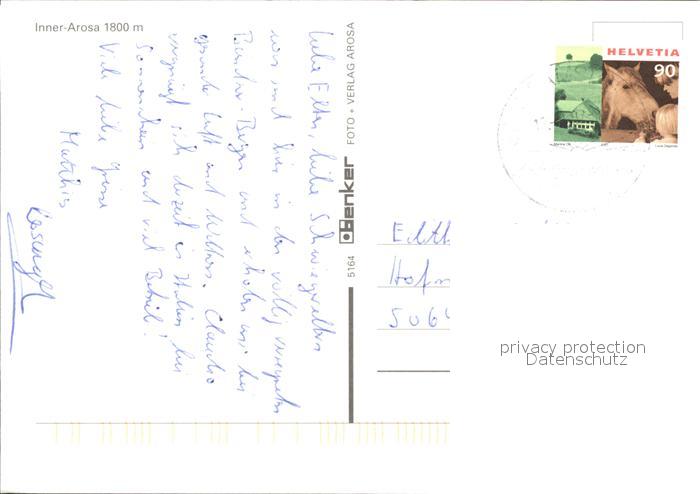 Inner-Arosa 1800 m
Liebe Eltern, liebe Schwiegereltern
wir sind hier in den völlig verregneten
Bündner-Bergen und erholen uns bei
gesunde Luft und Wellness. Claudio
vergnügt sich derzeit in Italien bei
Sonnenschein und viel Betrieb!
Viele liebe Grüsse
Matthias
5164 Benker FOTO + VERLAG AROSA
HELVETIA
90
Edith
Hofm
506
privacy protection
Datenschutz